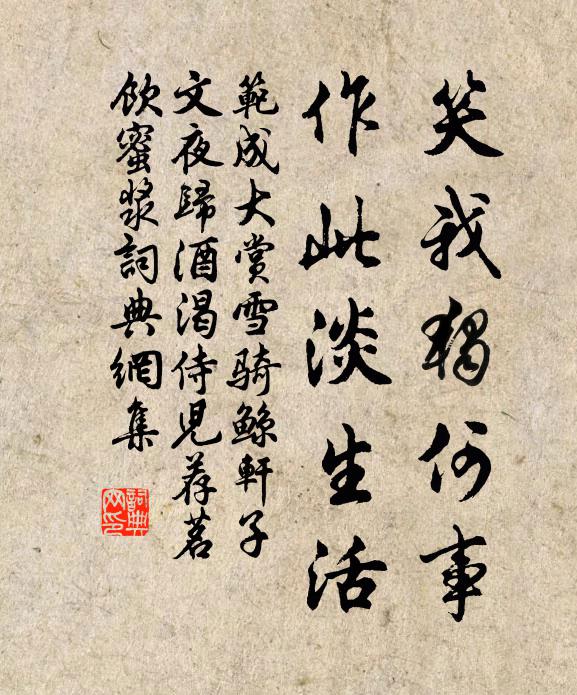 笑我獨何事
作此淡生活
範成大賞雪骑鲸軒子
文夜歸酒渴侍児荐茗
飲蜜漿詞典網集
詞典
网印